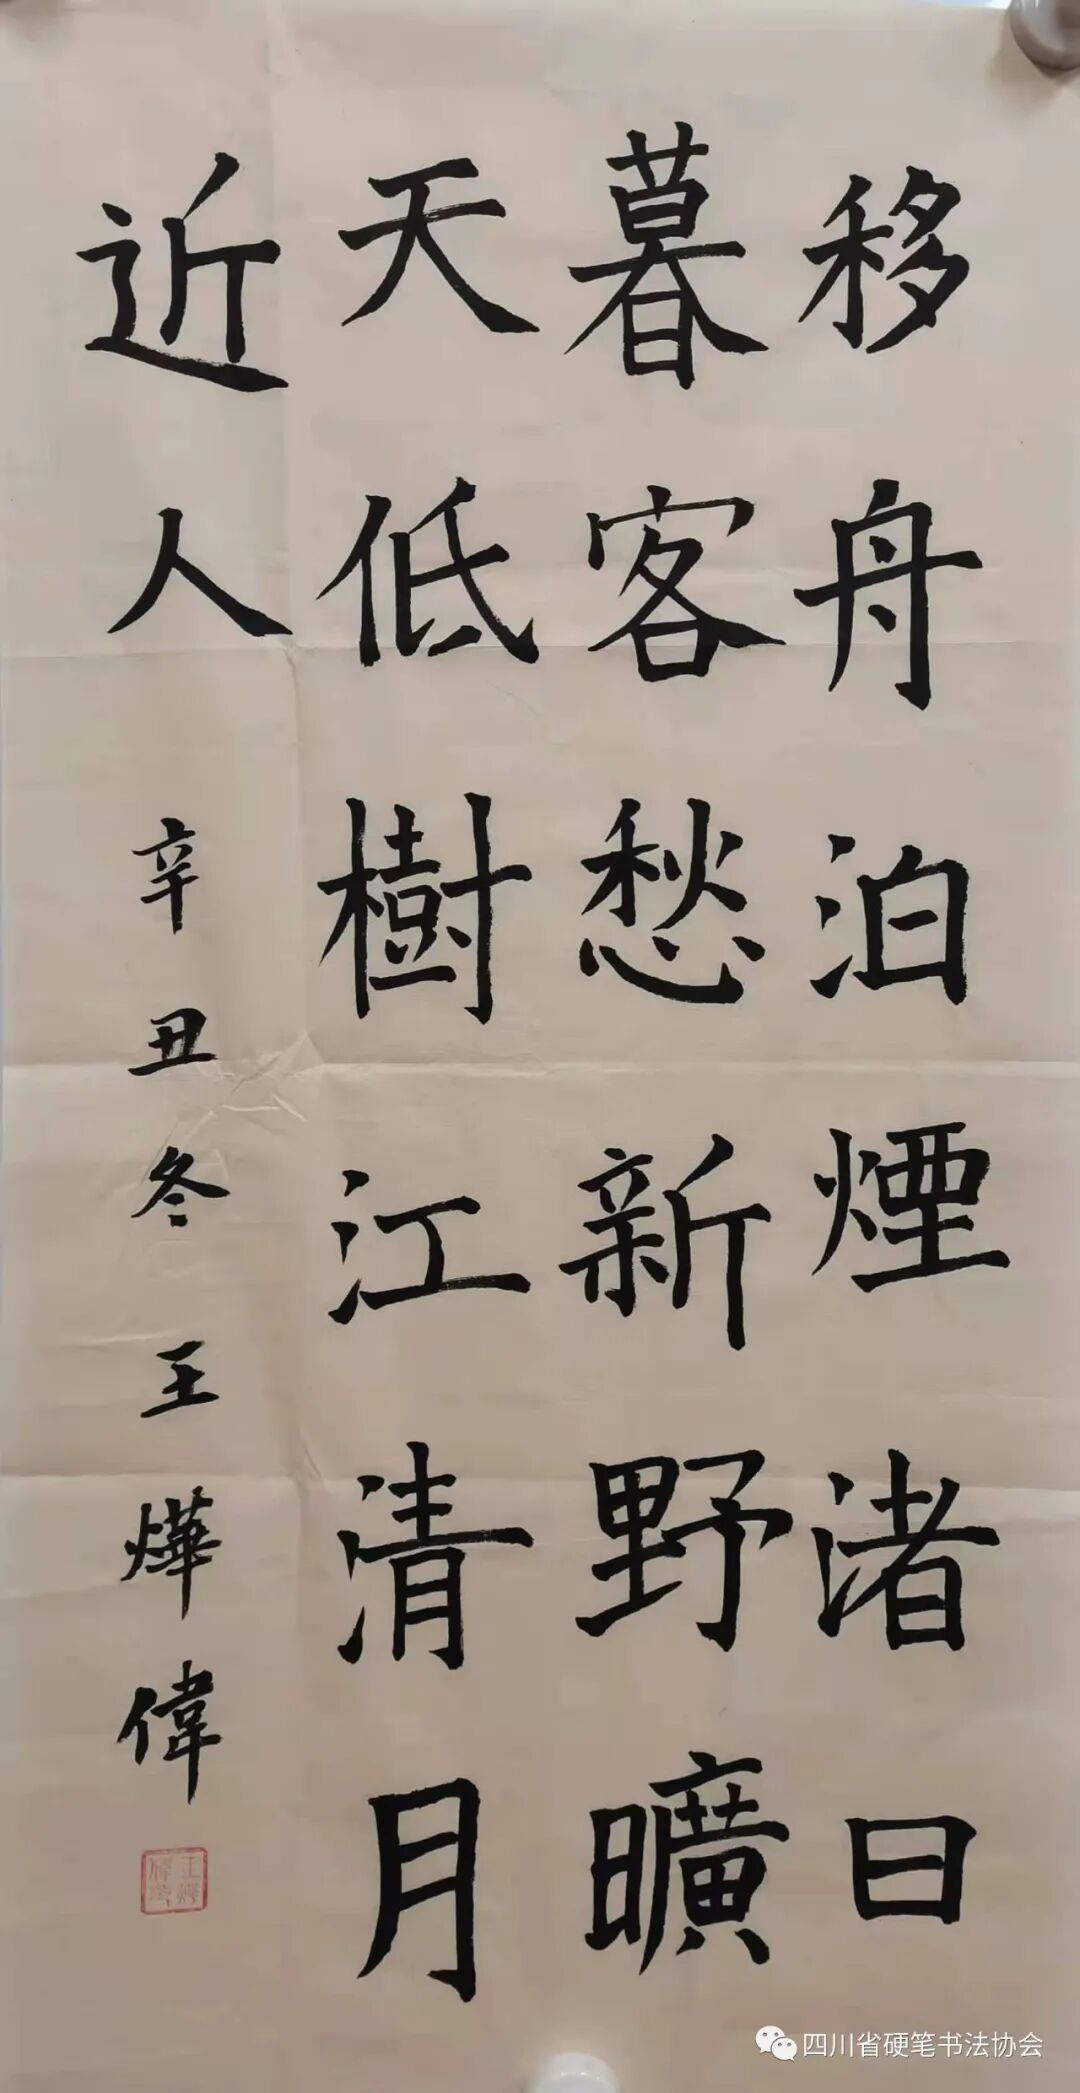 移舟泊煙渚日
暮客愁新野曠
天低樹江清月
近人
辛丑冬王燁偉
四川省硬笔书法协会